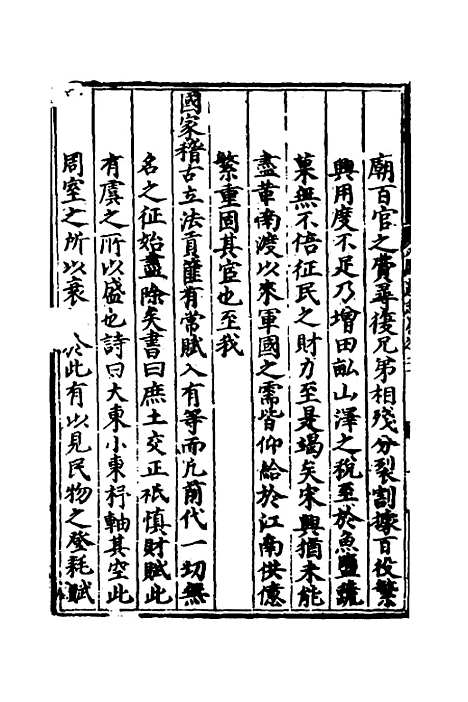 廟百官之費尋復兄弟相殘分裂割據百役繁
興用度不足乃增田畝山澤之稅至於魚鹽蔬
菓無不倍征民之財力至是竭矣宋興猶未能
盡革南渡以來軍國之需皆仰給於江南供億
繁重固其宜也至我
國家稽古立法貢篚有常賦入有等而凡前代一切無
名之征始盡除矣書曰庶土交正祗慎財賦此
有虞之所以盛也詩曰大東小東杼軸其空此
周室之所以衰 此有以見民物之登耗賦